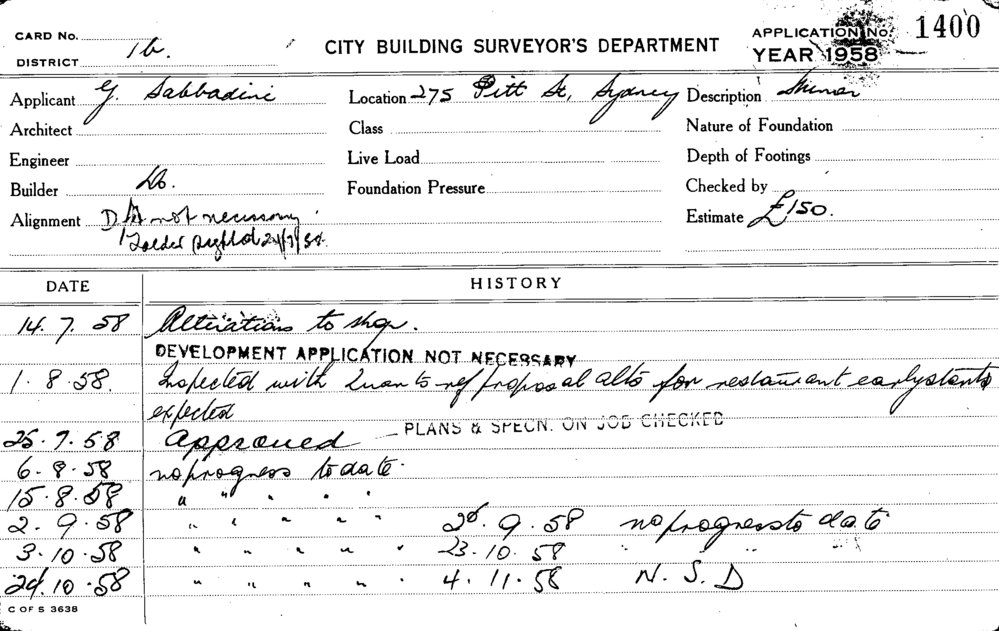 CARD No.
DISTRICT 1b.
CITY BUILDING SURVEYOR'S DEPARTMENT
APPLICATION No. 1400
YEAR 1958
Applicant G. Sabbadini
Location 275 Pitt St, Sydney
Description
Architect
Class
Nature of Foundation
Engineer
Live Load
Depth of Footings
Builder Do.
Foundation Pressure
Checked by
Alignment D A not necessary
Estimate £150.
DATE HISTORY
14. 7. 58 Alterations to shop.
DEVELOPMENT APPLICATION NOT NECESSARY
1. 8. 58. Inspected with proposal alts for restaurant early start
expected
25. 7. 58 Approved PLANS & SPECN. ON JOB CHECKED
6. 8. 58 no progress to date.
15. 8. 58 " " " " "
2. 9. 58 " " " " " 9. 58 no progress to date
3. 10. 58 " " " " " 23. 10. 58 " " "
24. 10. 58 " " " " " 4. 11. 58 N. S. D
C OF S 3638